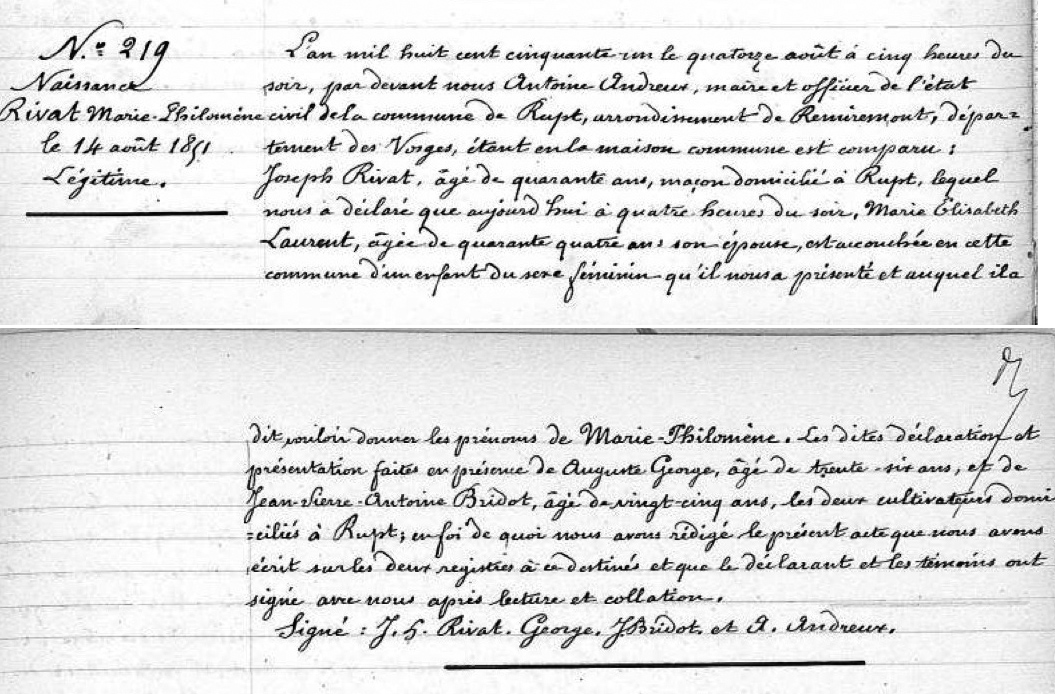 N.º 219
Naissance
Rivat Marie-Philomène
le 14 août 1851
Légitime.
L'an mil huit cent cinquante-un le quatorze août à cinq heures du
soir, par devant nous Antoine Andreux, maire et officier de l'état
civil de la commune de Rupt, arrondissement de Remiremont, dépar=
tement des Vosges, étant en la maison commune est comparu :
Joseph Rivat, âgé de quarante ans, maçon domicilié à Rupt, lequel
nous a déclaré que aujourd'hui à quatre heures du soir, Marie Élisabeth
Laurent, âgée de quarante quatre ans son épouse, est accouchée en cette
commune d'un enfant du sexe féminin qu'il nous a présenté et auquel il a
dit vouloir donner les prénoms de Marie-Philomène. Les dites déclaration et
présentation faites en présence de Auguste George, âgé de trente-six ans, et de
Jean-Pierre-Antoine Bridot, âgé de vingt-cinq ans, les deux cultivateurs domi
=ciliés à Rupt; en foi de quoi nous avons rédigé le présent acte que nous avons
écrit sur les deux registres à ce destinés et que le déclarant et les témoins ont
signé avec nous après lecture et collation.
Signé : J. h. Rivat. George. JBridot. et A. Andreux.